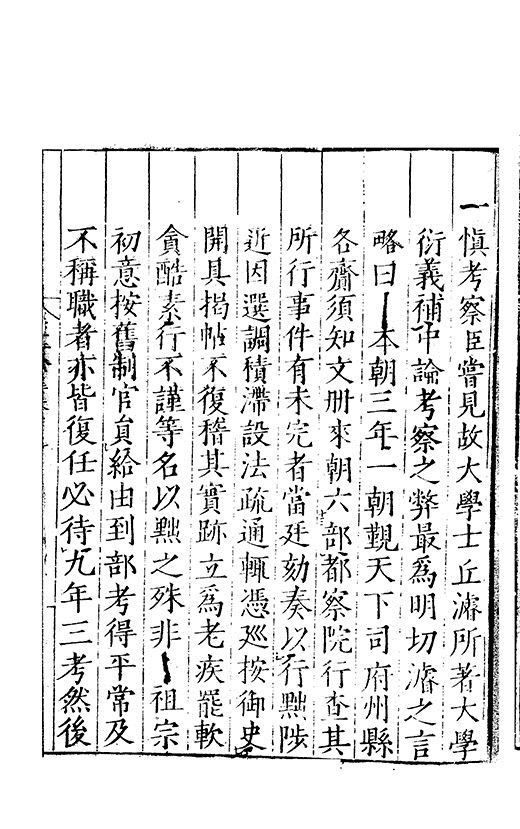 一慎考察臣嘗見故大學士丘濬所著大學
衍義補中論考察之弊最爲明切濬之言
略曰本朝三年一朝覲天下司府州縣
各齎須知文册來朝六部都察院行查其
所行事件有未完者當廷劾奏以行黜陟
近因選調積滯設法疏通輒憑巡按御史
開具揭帖不復稽其實跡立爲老疾罷軟
貪酷素行不謹等名以黜之殊非祖宗
初意按舊制官員給由到部考得平常及
不稱職者亦皆復任必待九年三考然後